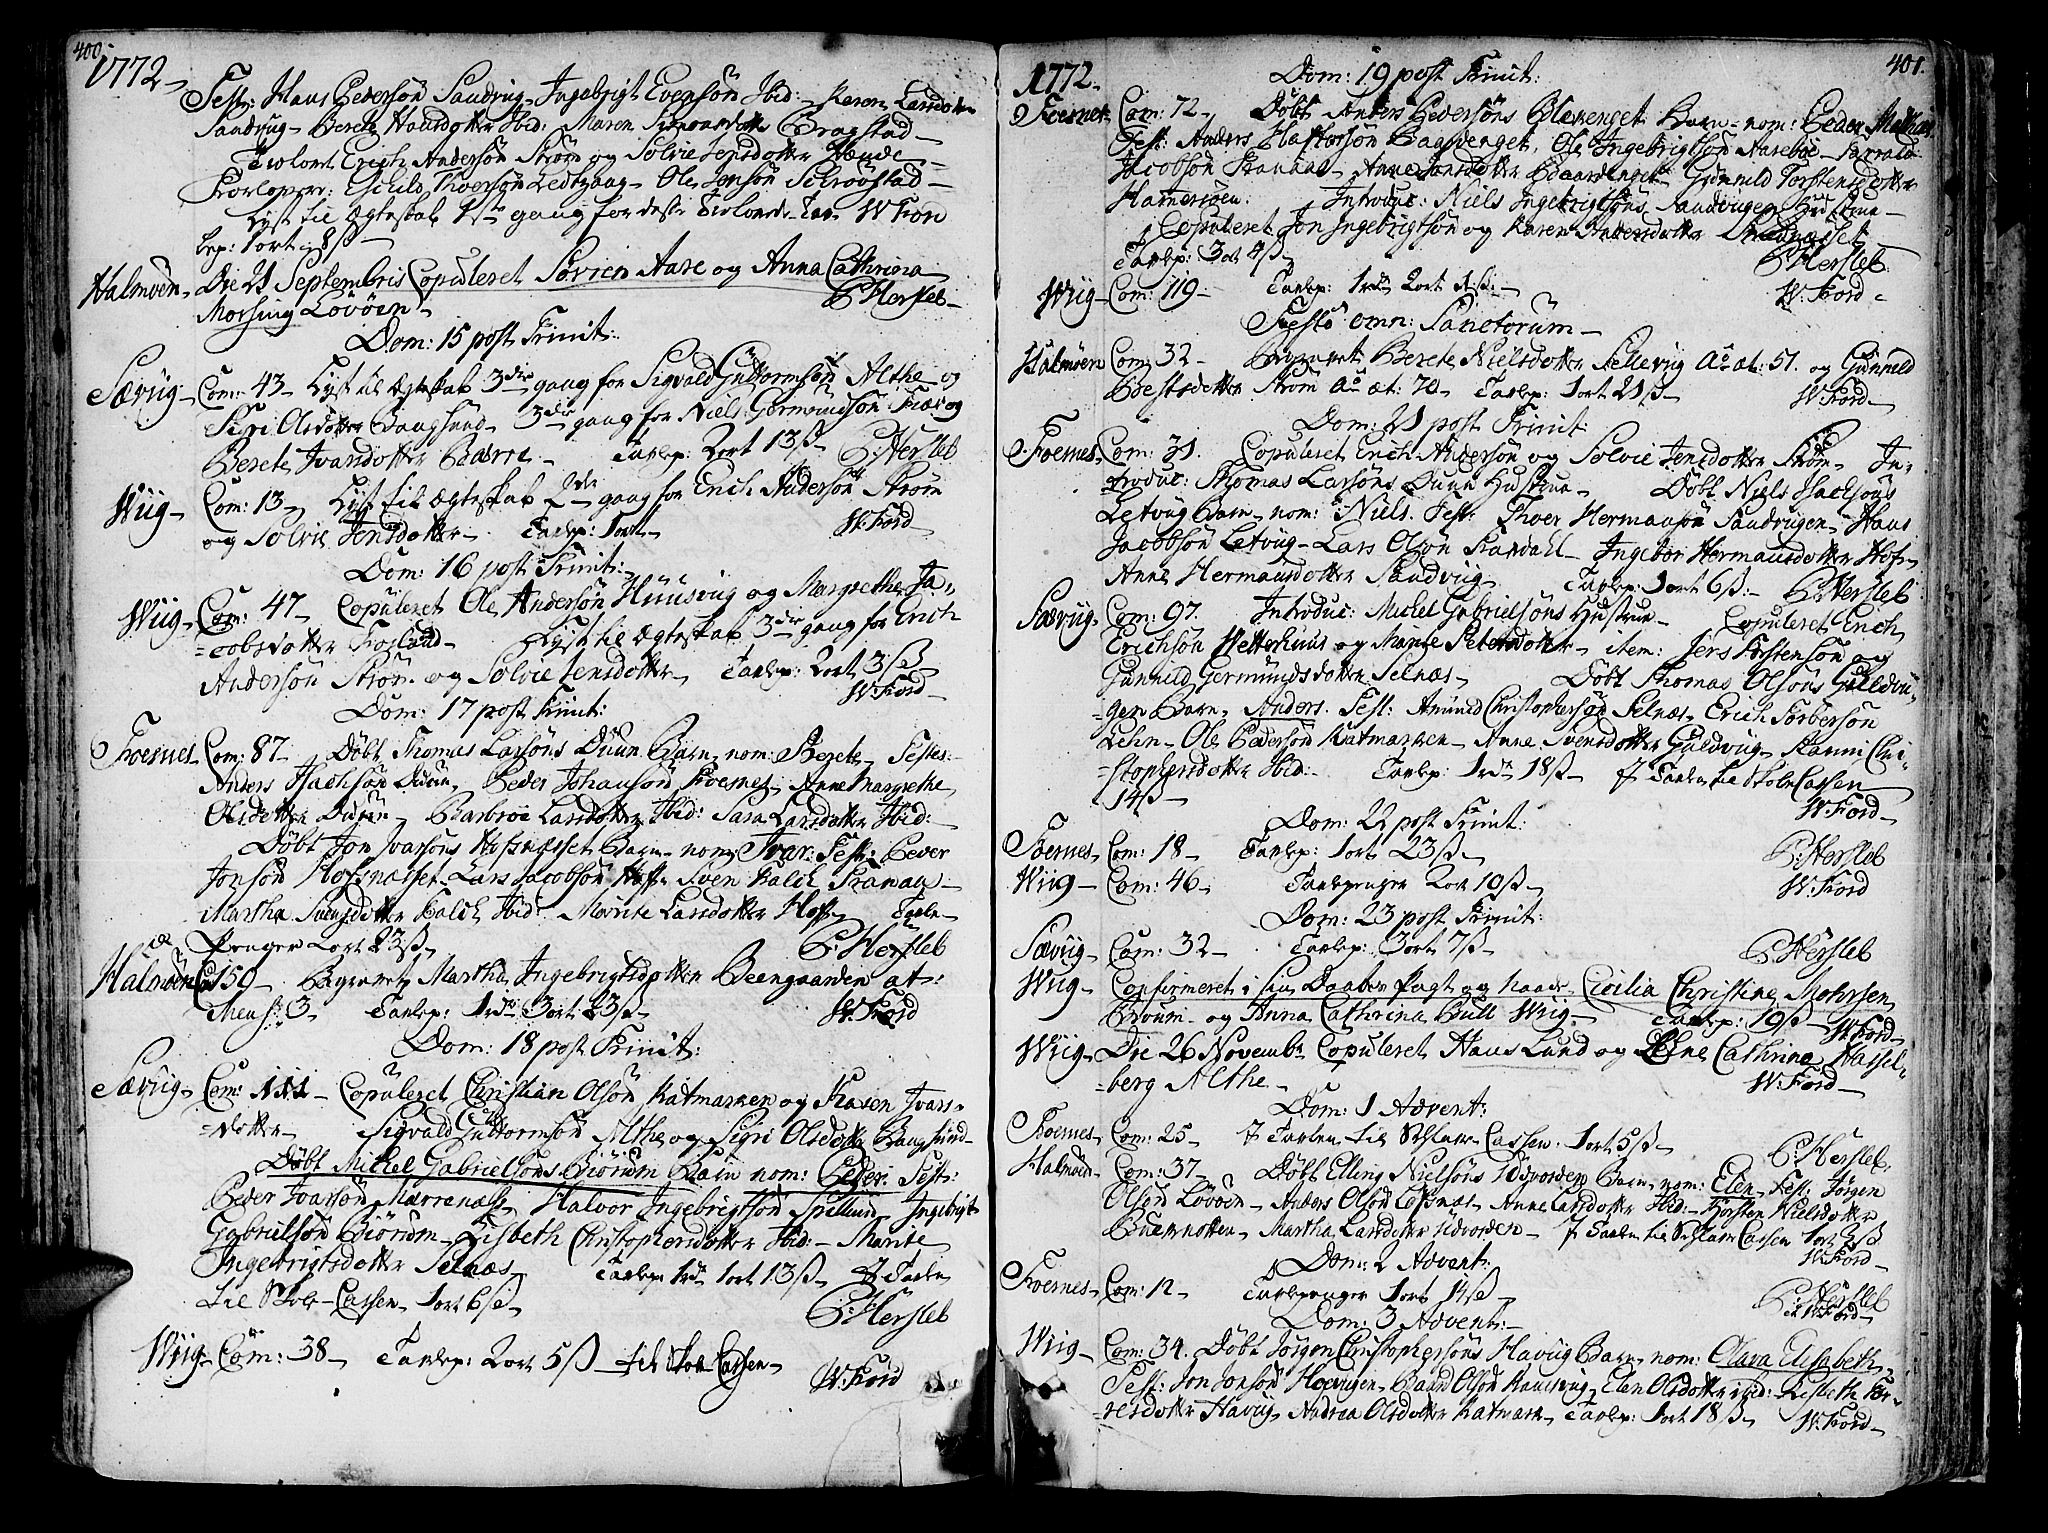 400.
1772
Test: Hans Pedersön Sandvug, Ingebrigt Evensön Ibid: Karen Larsdotter
Sandvug, Berete Hansdotter Ibid: Maren
Trolovet Erich Andersön Ström og Solvie Jensdotter
Forlovere: Eschild Thoersön Ole Jensön
Lyst til Ægteskab 1ste gang for deste Trolovede W: Ford
1 ort 8 ß
Halmöen Die 21 Septembris Copuleret Sörren Aare og Anna Cathrina
Morsing Lövöen P: Hersleb
Dom: 15 post Trinit:
Sævug Com: 43 Lyst til Ægteskab 3die gang for Sigvald Guttormsön Althe og
Sigri Olsdotter Baughund 3die gang for Niels Germundsön og
Berete Ivarsdotter Tavlep: 2 ort 13 ß P: Hersleb
Wiig Com: 13 Lyst til Ægteskab 2den gang for Erich Andersön Ström
og Solvie Jensdotter Tavlep: 1 ort W: Ford
Dom: 16 post Trinit:
Wiig Com: 47 Copuleret Ole Andersön Huusvug og Margrethe Ja-
=cobsdotter Lyst til Ægteskab 3die gang for Erich
Andersön Ström og Solvie Jensdotter Tavlep: 2 ort 3 ß
W: Ford
Dom: 17 post Trinit:
Foesnes Com: 87 Döbt Thomas Larsöns Duun Barn nom: Berete Testes:
Anders Isachsön Duun, Peder Johansön Foesnes, Anne Margrethe
Olsdotter Duun, Barbroe Larsdotter Ibid: Sara Larsdotter Ibid:
Döbt Jon Ivarsöns Hofsnæsset Barn nom: Ivar: Test: Peder
Jonsön Hofsnæsset, Lars Jacobsön Hoff, Sven Kalch
Martha Svensdotter Kalch Ibid: Marite Larsdotter Hoff, Tavle-
Penger 2 ort 23 ß P: Hersleb
Halmöen C 150 Begravet Martha Ingebrigtsdotter Beengaarden æt:
Mens: 3 Tavlep: 1 rd 3 ort 23 ß W: Ford
Dom: 18 post Trinit:
Sævug Com: 111 Copuleret Christian Olsön Katmarken og Karen Ivars-
=dotter Sigvald Guttormsön Althe og Sigri Olsdotter Baughund
Döbt Michel Gabrielsöns Biörum Barn nom: Peder. Test:
Peder Ivarsön Mærrenæs, Halvor Ingebrigtsön Spillum, Ingebrigt
Gabrielsön Biörum, Lisbeth Christophersdotter Ibid: Marite
Ingebrigtsdotter Selnæs, Tavlep: 1 rd 1 ort 13 ß I Tavlen
til Skole Cassen 1 ort 6 ß P: Hersleb
Wiig Com: 38 Tavlep: 2 ort 5 ß til Skole Cassen
W: Ford
401.
1772 Dom: 19 post Trinit:
Foesnes Com: 72 Döbt Anders Pedersöns Blævenget Barn nom: Peder Mathias
Test: Anders Bagsdenget, Ole Ingebrigtsön
Jacobsön Anne Gunnild Torstensdotter
Introduc: Niels Ingebrigtsöns Sandvigen Hustrue
Copuleret Jon Ingebrigtsön og Karen Andersdotter
Tavlep: 3 ort 4 ß P: Hersleb
Wiig Com: 119 Tavlep: 1 rd 2 ort 1 ß W: Ford
Festo omn: Sanctorum
Halmöen Com: 32 Begravet: Berete Nielsdotter Sellevug Ao æt: 51. og Gunnild
Ström Ao æt: 70 Tavlep: 1 ort 21 ß W: Ford
Dom: 21 post Trinit:
Foesnes Com: 31. Copuleret Erich Andersön og Solvie Jensdotter Ström In-
=troduc: Thomas Larsöns Duun Hustrue Döbt Niels Isachsöns
Letvug Barn nom: Niels. Test: Thoer Hermansön Sandvugen, Hans
Jacobsön Letvug, Lars Olsön Ingebor Hermansdotter Hof
Anne Hermansdotter Sandvug Tavlep: 1 ort 6 ß P: Hersleb
Sævug Com: 97. Introduc: Michel Gabrielsöns Hustrue Copuleret Erich
Erichsön og Petersdotter item: Jens Torstensön og
Gunnild Germundsdotter Selnæs Döbt Thomas Olsöns Guldvu-
=gen Barn, Anders. Test: Amund Christophersön Selnæs, Erich Torbersön
Lehn, Ole Pedersön Katmarken, Anne Svensdotter Guldvug, Karen Chri-
=stophersdotter Ibid: Tavlep: 1 rd 18 ß I Tavlen til Skole Cassen
14 ß W: Ford
Dom: 22 post Trinit:
Foesnes Com: 18 Tavlep: 1 ort 23 ß P: Hersleb
Wiig Com: 46 Tavlepenger 2 ort 10 ß W: Ford
Dom: 23 post Trinit:
Sævug Com: 32 Tavlep: 3 ort 7 ß P: Hersleb
Wiig Confirmeret i sin Daabes Pagt og Naade Cicilia Christine Mohrsen
og Anna Cathrina Bull Wiig Tavlep: 19 ß W: Ford
Wiig Die 26 Novembr Copuleret Hans Lund og Cathrina Hassel-
=berg Althe W: Ford
Dom: 1 Advent:
Foesnes Com: 25 I Tavlen til Cassen 1 ort 5 ß P: Hersleb
Halmöen Com: 37 Döbt Elling Nielsöns Udvorden Barn nom: Elen. Test: Jörgen
Olsön Lövöen, Anders Olsön Anne Larsdotter Ibid: Nielsdotter
Martha Larsdotter Udvorden I Tavlen til Cassen 1 ort 2 ß
Dom: 2 Advent: W: Ford
Foesnes Com: 12 Tavlepenger 1 ort 14 ß P: Hersleb
Dom: 3 Advent: W: Ford
Wiig Com: 34. Döbt Jörgen Christophersöns Havug Barn nom: Olava Elisabeth
Test: Jon Jonsön Olsön Elen Olsdotter ibid: Lisbeth
Havug, Andrea Olsdotter Katmark, Tavlep: 1 ort 18 ß W: Ford